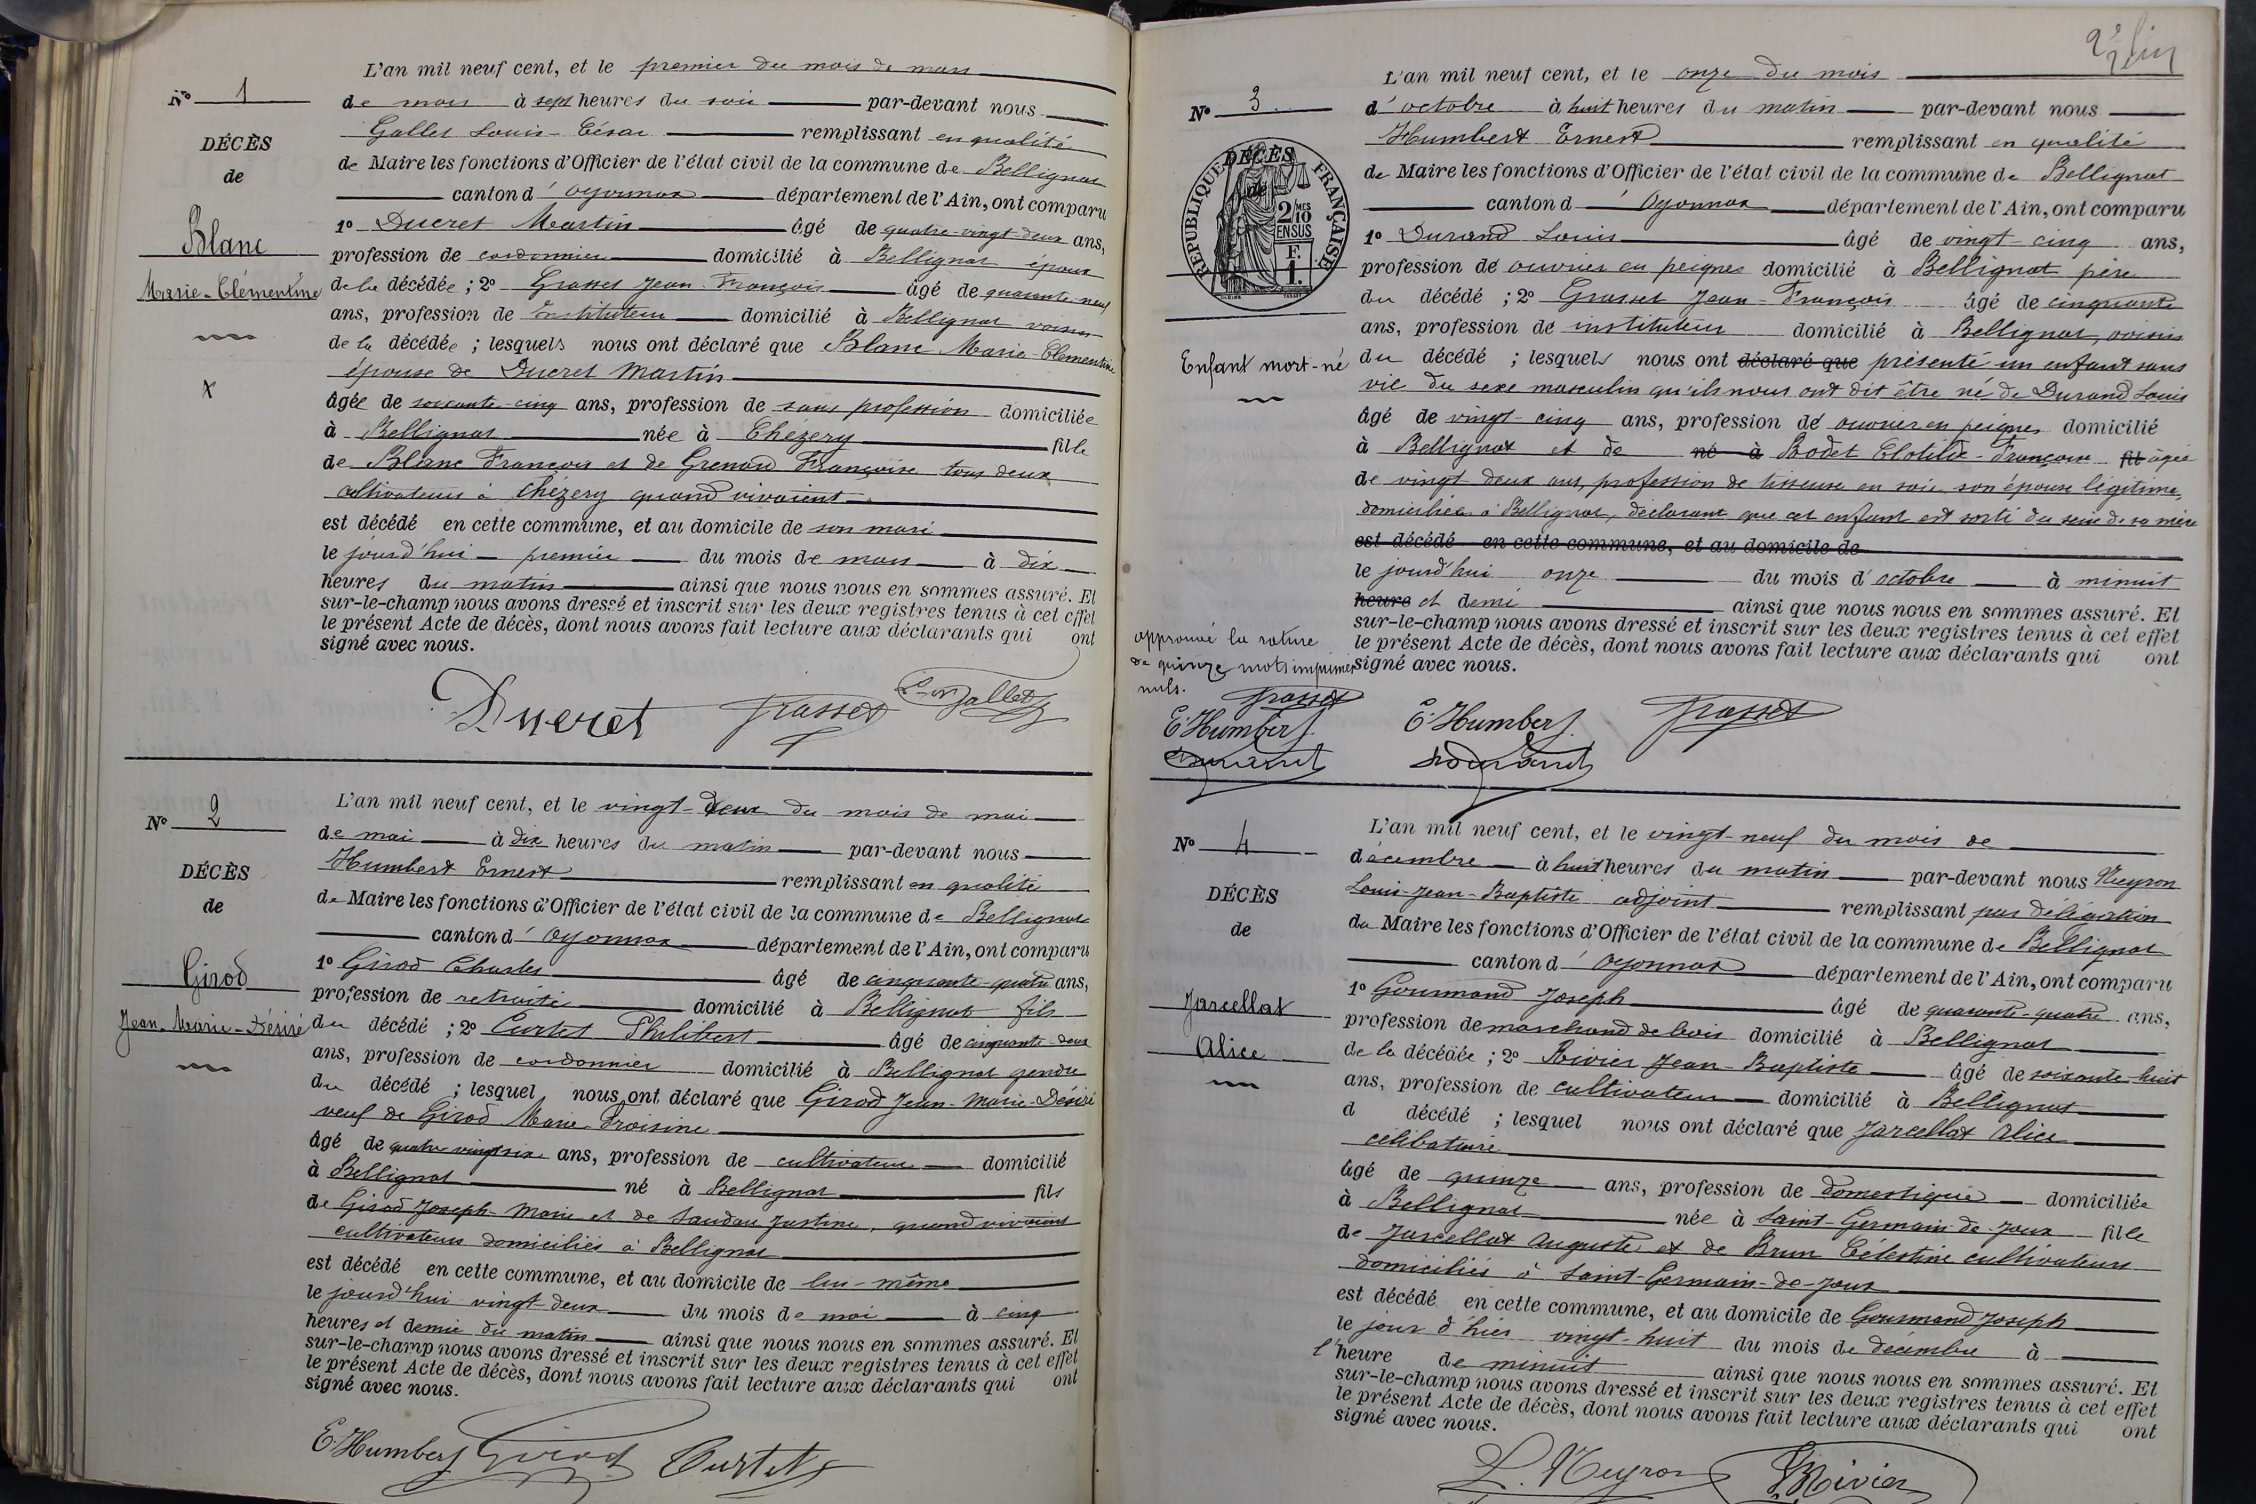 L'an mil neuf cent, et le premier du mois de mars
N° 1
de mars à sept heures du soir par-devant nous
DÉCÈS
Gallet Louis-César remplissant en qualité
de
de Maire les fonctions d'Officier de l'état civil de la commune de Bellignat
canton d'Oyonnax département de l'Ain, ont comparu
Blanc
1° Ducret Martin âgé de quatre-vingt-deux ans,
profession de cordonnier domicilié à Bellignat époux
Marie-Clémentine
de la décédée ; 2° Grasset Jean-François âgé de quarante-neuf
ans, profession de Instituteur domicilié à Bellignat voisin
de la décédée ; lesquels nous ont déclaré que Blanc Marie-Clémentine
x
épouse de Ducret Martin
âgée de soixante-cinq ans, profession de sans profession domiciliée
à Bellignat née à Chézery fille
de Blanc François et de Grenard Françoise tous deux
cultivateurs à Chézery quand vivaient
est décédé en cette commune, et au domicile de son mari
le jourd'hui premier du mois de mars à dix
heures du matin ainsi que nous nous en sommes assuré. Et
sur-le-champ nous avons dressé et inscrit sur les deux registres tenus à cet effet
le présent Acte de décès, dont nous avons fait lecture aux déclarants qui ont
signé avec nous.
Ducret Grasset Gallet
L'an mil neuf cent, et le vingt-deux du mois de mai
N° 2
de mai à dix heures du matin par-devant nous
DÉCÈS
Humbert Ernest remplissant en qualité
de
de Maire les fonctions d'Officier de l'état civil de la commune de Bellignat
canton d'Oyonnax département de l'Ain, ont comparu
Girod
1° Girod Charles âgé de cinquante-quatre ans,
profession de retraité domicilié à Bellignat fils
Jean-Marie-Désiré
du décédé ; 2° Curtet Philibert âgé de cinquante-deux
ans, profession de cordonnier domicilié à Bellignat gendre
du décédé ; lesquel nous ont déclaré que Girod Jean-Marie-Désiré
veuf de Girod Marie Froisine
âgé de quatre vingt six ans, profession de cultivateur domicilié
à Bellignat né à Bellignat fils
de Girod Joseph-Marie et de Justine, quand vivaient
cultivateurs domiciliés à Bellignat
est décédé en cette commune, et au domicile de lui-même
le jourd'hui vingt-deux du mois de mai à cinq
heures et demie du matin ainsi que nous nous en sommes assuré. Et
sur-le-champ nous avons dressé et inscrit sur les deux registres tenus à cet effet
le présent Acte de décès, dont nous avons fait lecture aux déclarants qui ont
signé avec nous.
E. Humbert Girod Curtet
L'an mil neuf cent, et le onze du mois
N° 3
d'octobre à huit heures du matin par-devant nous
DÉCÈS
Humbert Ernest remplissant en qualité
de
de Maire les fonctions d'Officier de l'état civil de la commune de Bellignat
RÉPUBLIQUE FRANÇAISE
2/10 MES
EN SUS
F.
1.
canton d'Oyonnax département de l'Ain, ont comparu
1° Durand Louis âgé de vingt-cinq ans,
profession de ouvrier en peignes domicilié à Bellignat père
du décédé ; 2° Grasset Jean-François âgé de cinquante
ans, profession de instituteur domicilié à Bellignat, voisin
Enfant mort-né
du décédé ; lesquels nous ont déclaré que présenté un enfant sans
vie du sexe masculin qu'ils nous ont dit être né de Durand Louis
âgé de vingt-cinq ans, profession de ouvrier en peignes domicilié
à Bellignat et de né à Bodet Clotilde-Françoise fil âgée
de vingt deux ans, profession de tisseuse en soie son épouse légitime,
domiciliée à Bellignat, déclarant que cet enfant est sorti du sein de sa mère
est décédé en cette commune, et au domicile de
le jourd'hui onze du mois d'octobre à minuit
heure et demi ainsi que nous nous en sommes assuré. Et
sur-le-champ nous avons dressé et inscrit sur les deux registres tenus à cet effet
le présent Acte de décès, dont nous avons fait lecture aux déclarants qui ont
signé avec nous.
approuvé la rature
de quinze mots imprimés
nuls.
Grasset
E. Humbert E. Humbert Grasset
Durand Durand
L'an mil neuf cent, et le vingt-neuf du mois de
N° 4
décembre à huit heures du matin par-devant nous Neyron
DÉCÈS
Louis-Jean-Baptiste adjoint remplissant par délégation
de
du Maire les fonctions d'Officier de l'état civil de la commune de Bellignat
canton d'Oyonnax département de l'Ain, ont comparu
Jarcellat
1° Gourmand Joseph âgé de quarante-quatre ans,
profession de marchand de bois domicilié à Bellignat
Alice
de la décédée ; 2° Rivier Jean-Baptiste âgé de soixante-huit
ans, profession de cultivateur domicilié à Bellignat
d décédé ; lesquel nous ont déclaré que Jarcellat Alice
célibataire
âgé de quinze ans, profession de domestique domiciliée
à Bellignat née à Saint-Germain-de-Joux fille
de Jarcellat Auguste et de Brun Célestine cultivateurs
domiciliés à Saint-Germain-de-Joux
est décédé en cette commune, et au domicile de Gourmand Joseph
le jour d'hier vingt-huit du mois de décembre à
l'heure de minuit ainsi que nous nous en sommes assuré. Et
sur-le-champ nous avons dressé et inscrit sur les deux registres tenus à cet effet
le présent Acte de décès, dont nous avons fait lecture aux déclarants qui ont
signé avec nous.
L. Neyron Rivier